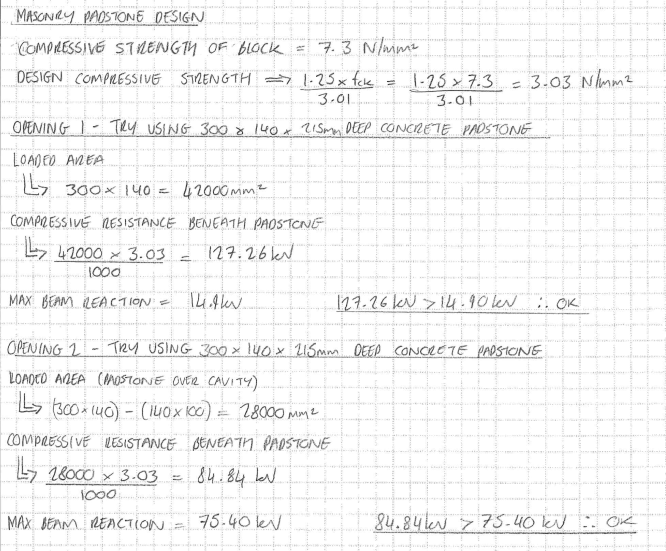 MASONRY PADSTONE DESIGN
COMPRESSIVE STRENGTH OF BLOCK = 7.3 N/mm²
DESIGN COMPRESSIVE STRENGTH ⇒ 1.25 x fck / 3.01 = 1.25 x 7.3 / 3.01 = 3.03 N/mm²
OPENING 1 - TRY USING 300 x 140 x 215mm DEEP CONCRETE PADSTONE
LOADED AREA
↳ 300 x 140 = 42000mm²
COMPRESSIVE RESISTANCE BENEATH PADSTONE
↳ 42000 x 3.03 / 1000 = 127.26 kN
MAX BEAM REACTION = 14.9kN 127.26 kN > 14.90 kN ∴ OK
OPENING 2 - TRY USING 300 x 140 x 215mm DEEP CONCRETE PADSTONE
LOADED AREA (PADSTONE OVER CAVITY)
↳ (300 x 140) - (140 x 100) = 28000 mm²
COMPRESSIVE RESISTANCE BENEATH PADSTONE
↳ 28000 x 3.03 / 1000 = 84.84 kN
MAX BEAM REACTION = 75.40 kN 84.84 kN > 75.40 kN ∴ OK